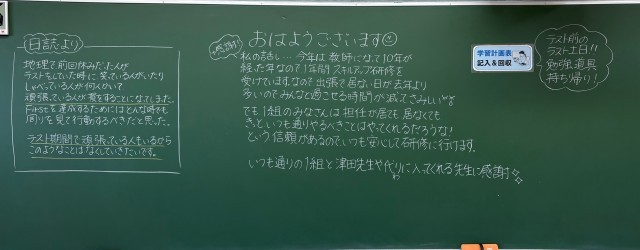 日誌より
地理で前回休みだった人が
テストをしていた時に、笑っている人がいたり
しゃべっている人が何人かいて
頑張っている人が損をすることになってました。
Firstを達成するためにはどんな時でも
周りを見て行動するべきだと思った。
テスト期間で頑張っている人もいるから
このようなことはなくしていきたいです。
感謝!
おはようございます
私の話し… 今年は教師になって10年が
経った年なので1年間スキルアップ研修を
受けています。なので出張で居ない日が去年より
多いのでみんなと過ごせる時間が減ってさみしい
でも1組のみなさんは担任が居ても居なくても
きっといつも通りやるべきことはやってくれるだろうな!
という信頼があるのでいつも安心して研修に行けます。
いつも通りの1組と津田先生や代わりに入ってくれる先生に感謝!
学習計画表
記入&回収
テスト前の
ラスト土日!!
勉強道具
持ち帰り!